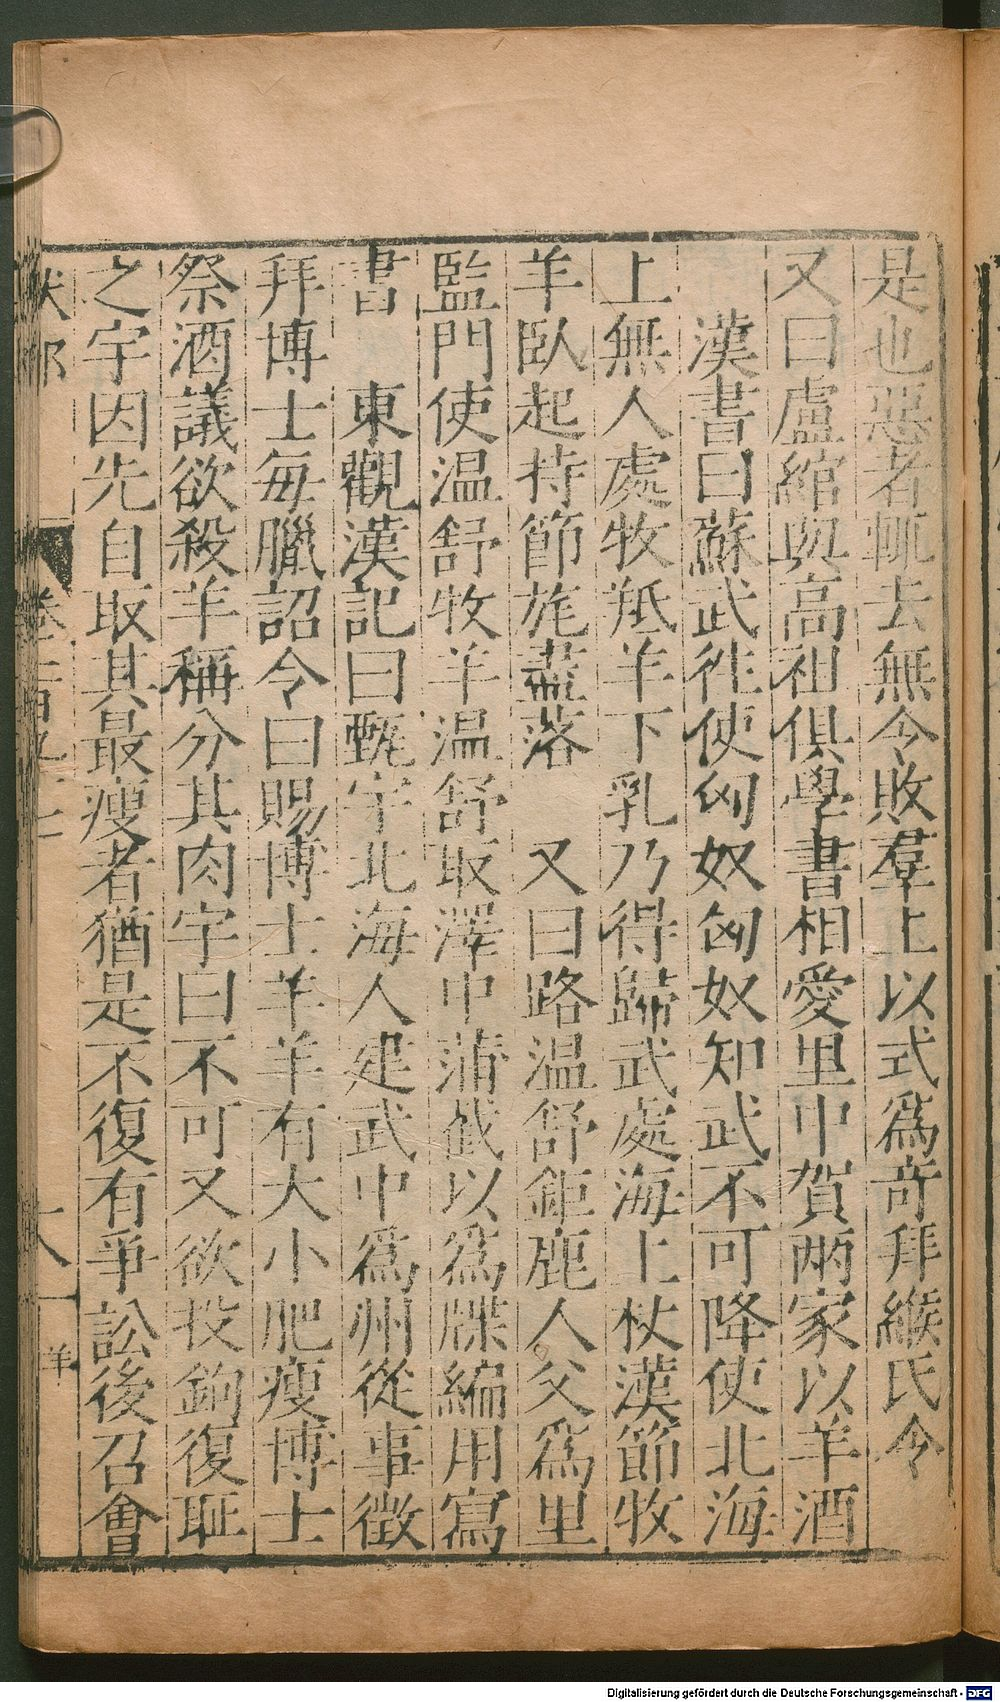 是也惡者輒去無令敗羣上以式爲奇拜緱氏令
又曰盧綰與高祖俱學書相愛里中賀兩家以羊酒
漢書曰蘇武徃使匈奴匈奴知武不可降使北海
上無人處牧羝羊羊下乳乃得歸武處海上杖漢節牧
羊臥起持節旄盡落　又曰路温舒鉅鹿人父爲里
監門使温舒牧羊温舒取澤中蒲截以爲牒編用寫
書　東觀漢記曰甄宇北海人建武中爲州從事徵
拜博士每臘詔令曰賜博士羊羊有大小肥瘦博士
祭酒議欲殺羊稱分其肉宇曰不可又欲投鉤復恥
之宇因先自取其最瘦者猶是不復有爭訟後召會
十八
羊
Digitalisierung gefördert durch die Deutsche Forschungsgemeinschaft - DFG